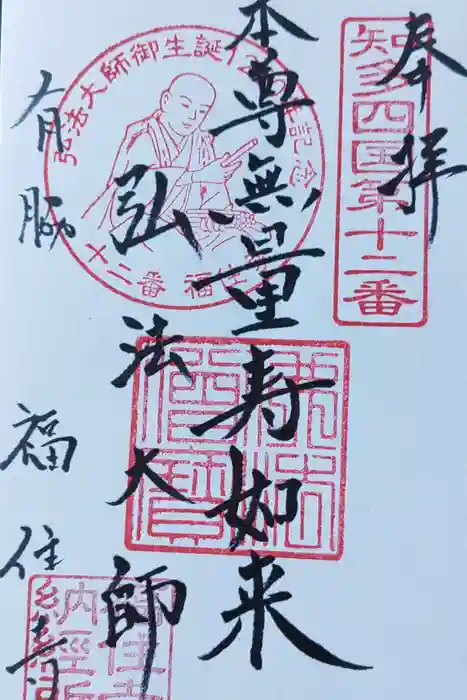 奉拝
知多四国第十二番
本尊無量寿如来
弘法大師
弘法大師御生誕
記念
十二番 福住
有脇 福住寺
納経所